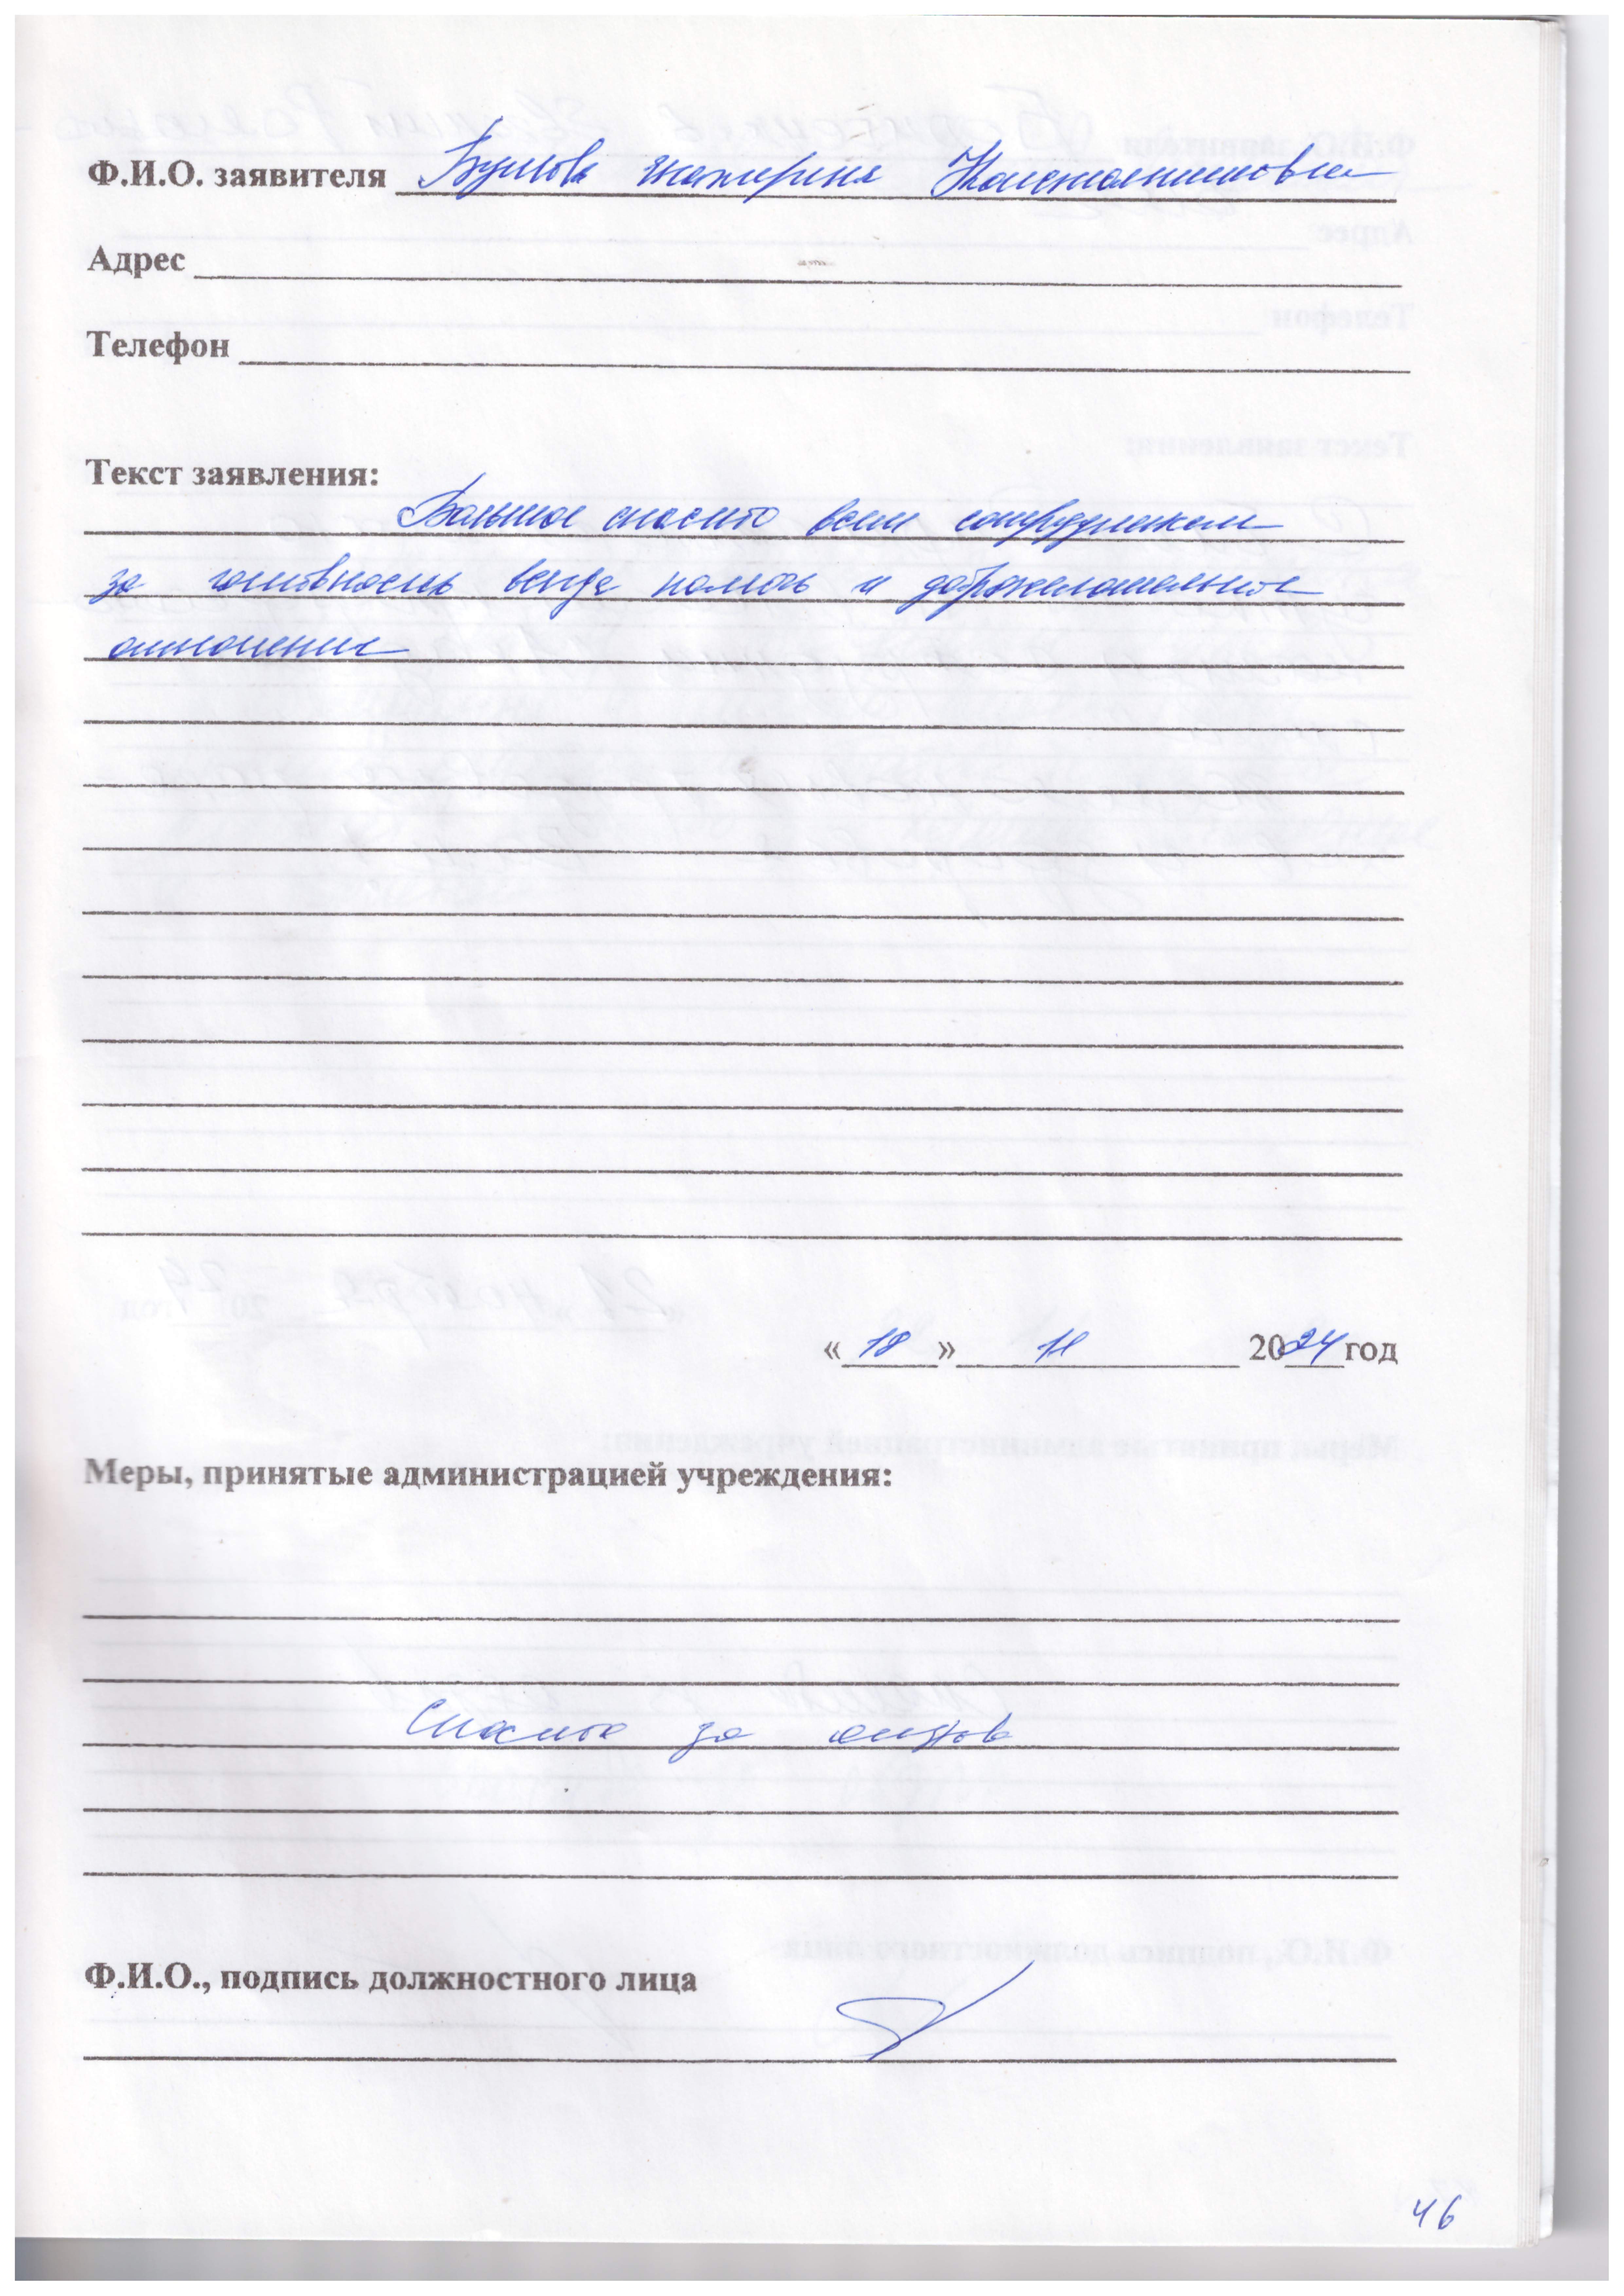 Ф.И.О. заявителя Екатерина Константиновна
Адрес
Телефон
Текст заявления:
Большое спасибо всем сотрудникам
за готовность всегда помочь и доброжелательное
отношение
«18» 11 2024год
Меры, принятые администрацией учреждения:
Спасибо за отзыв
Ф.И.О., подпись должностного лица
46